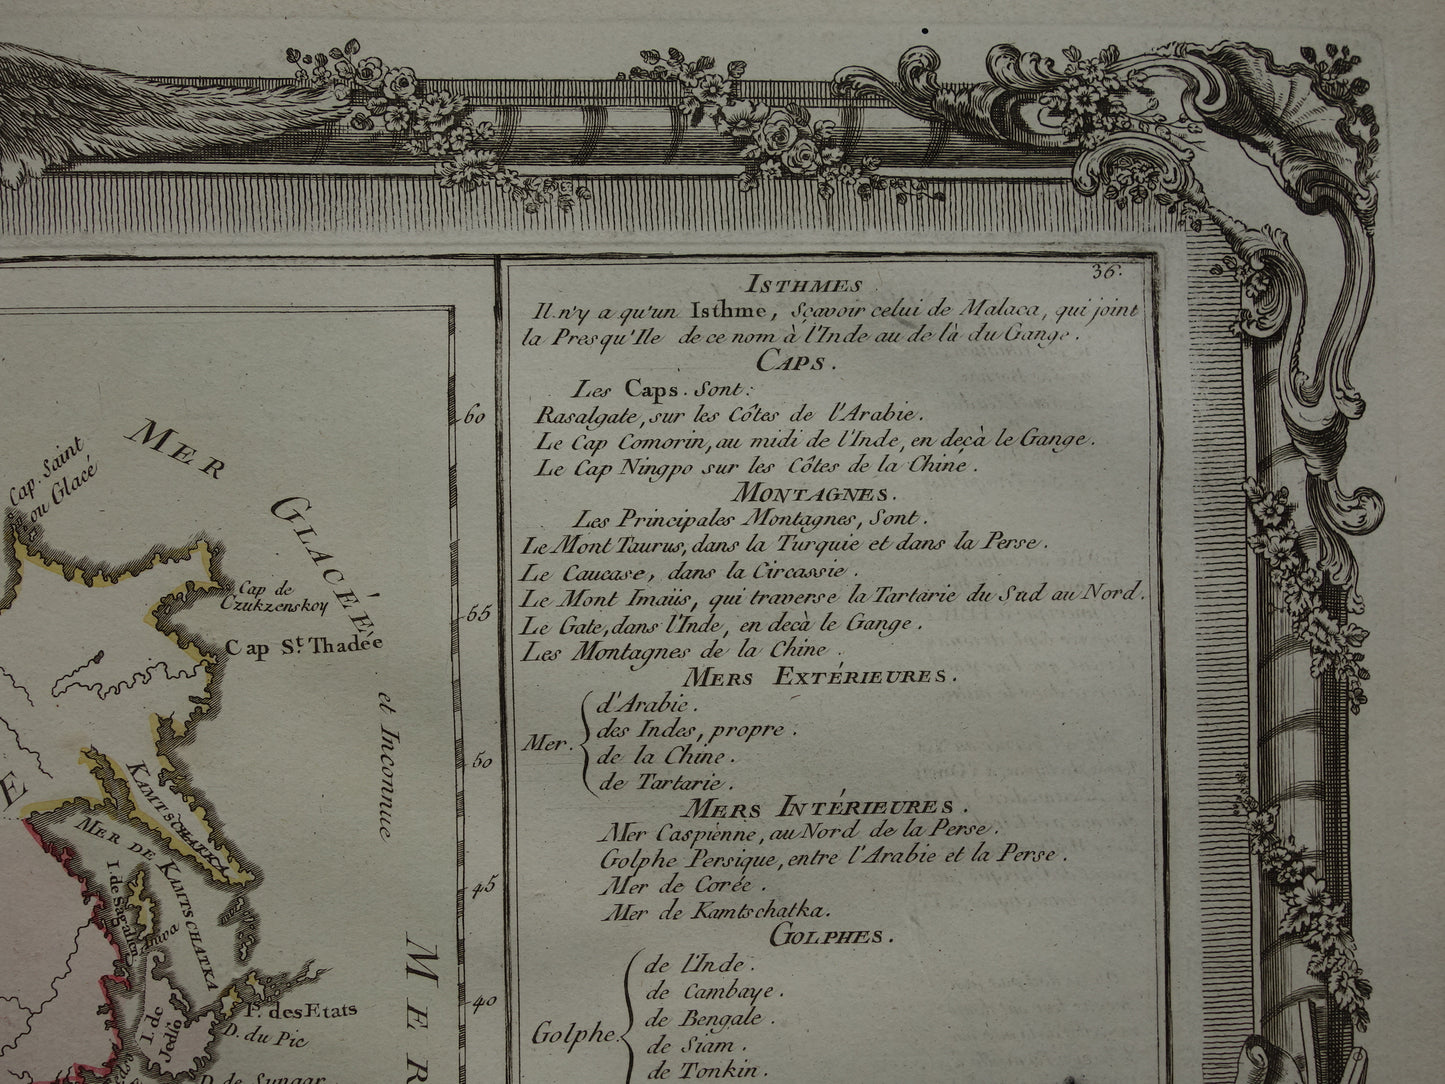 36.
ISTHMES
Il n'y a qu'un Isthme, Sçavoir celui de Malaca, qui joint
la Presqu'Ile de ce nom à l'Inde au de là du Gange.
CAPS.
Les Caps. Sont:
Rasalgate, sur les Côtes de l'Arabie.
Le Cap Comorin, au midi de l'Inde, en deçà le Gange.
Le Cap Ningpo sur les Côtes de la Chine.
MONTAGNES.
Les Principales Montagnes, Sont.
Le Mont Taurus, dans la Turquie et dans la Perse.
Le Caucase, dans la Circassie.
Le Mont Imaüs, qui traverse la Tartarie du Sud au Nord.
Le Gate, dans l'Inde, en decà le Gange.
Les Montagnes de la Chine.
MERS EXTÉRIEURES.
Mer.
d'Arabie.
des Indes, propre.
de la Chine.
de Tartarie.
MERS INTÉRIEURES.
Mer Caspienne, au Nord de la Perse.
Golphe Persique, entre l'Arabie et la Perse.
Mer de Corée.
Mer de Kamtschatka.
GOLPHES.
Golphe.
de l'Inde.
de Cambaye.
de Bengale.
de Siam.
de Tonkin.
60
55
50
45
40
MER GLACÉE
et Inconnue
MER
Cap. Saint
ou Glacé
Cap de
Czukzenskoy
Cap St. Thadée
E
KAMTSCHATKA
MER DE KAMTSCHATKA
I. de Sagalien
Aniva
I. de
Jedso
P. des Etats
D. du Pic
D. de Sungar